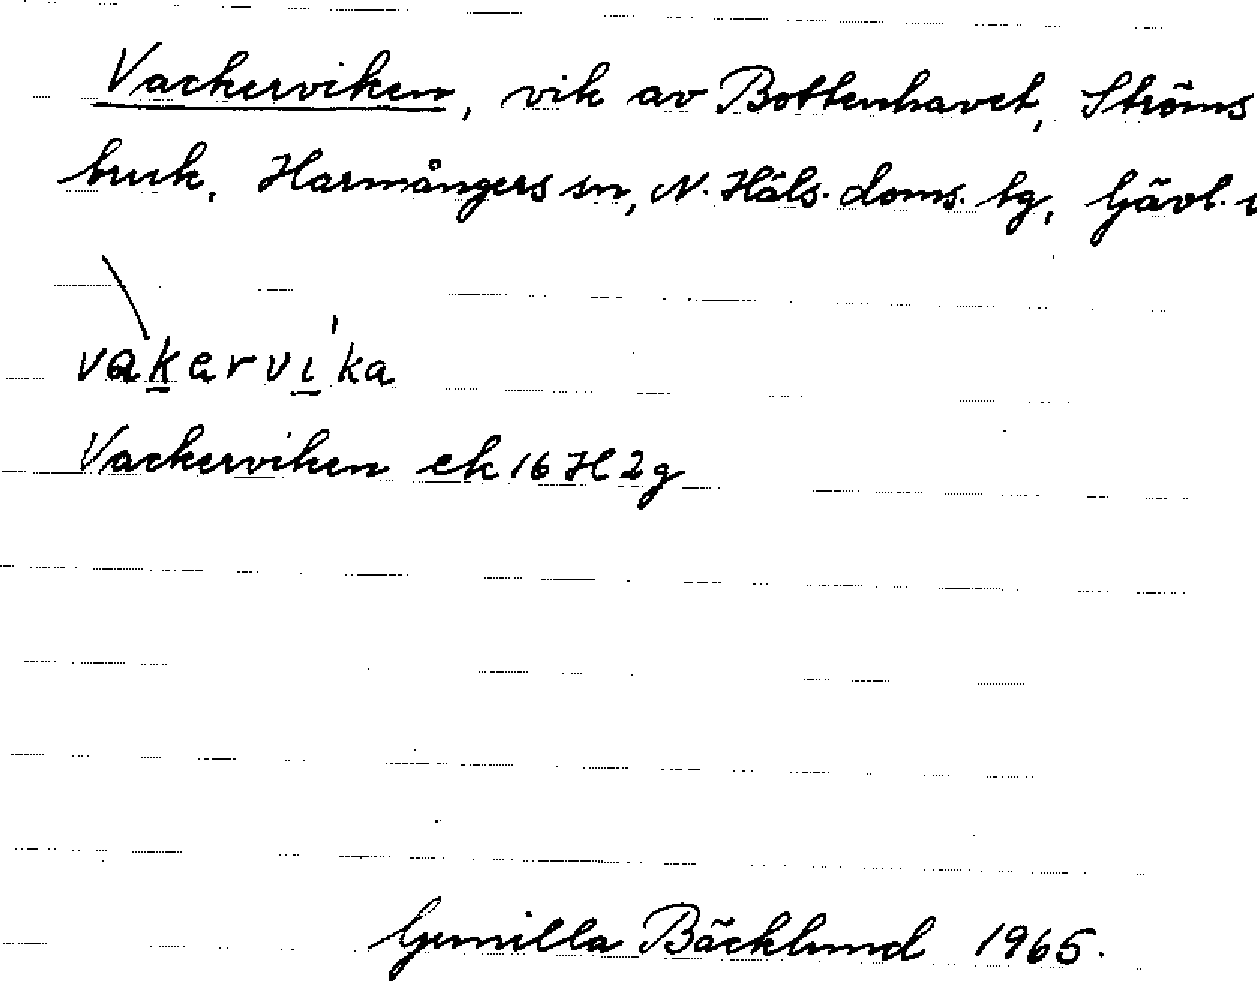 Vackerviken, vik av Bottenhavet, Ströms
bruk, Harmångers sn, N. Häls. doms. tg, Gävl.
vakervika
Vackerviken ek 16 H 2 g
Gunilla Bäcklund 1965.